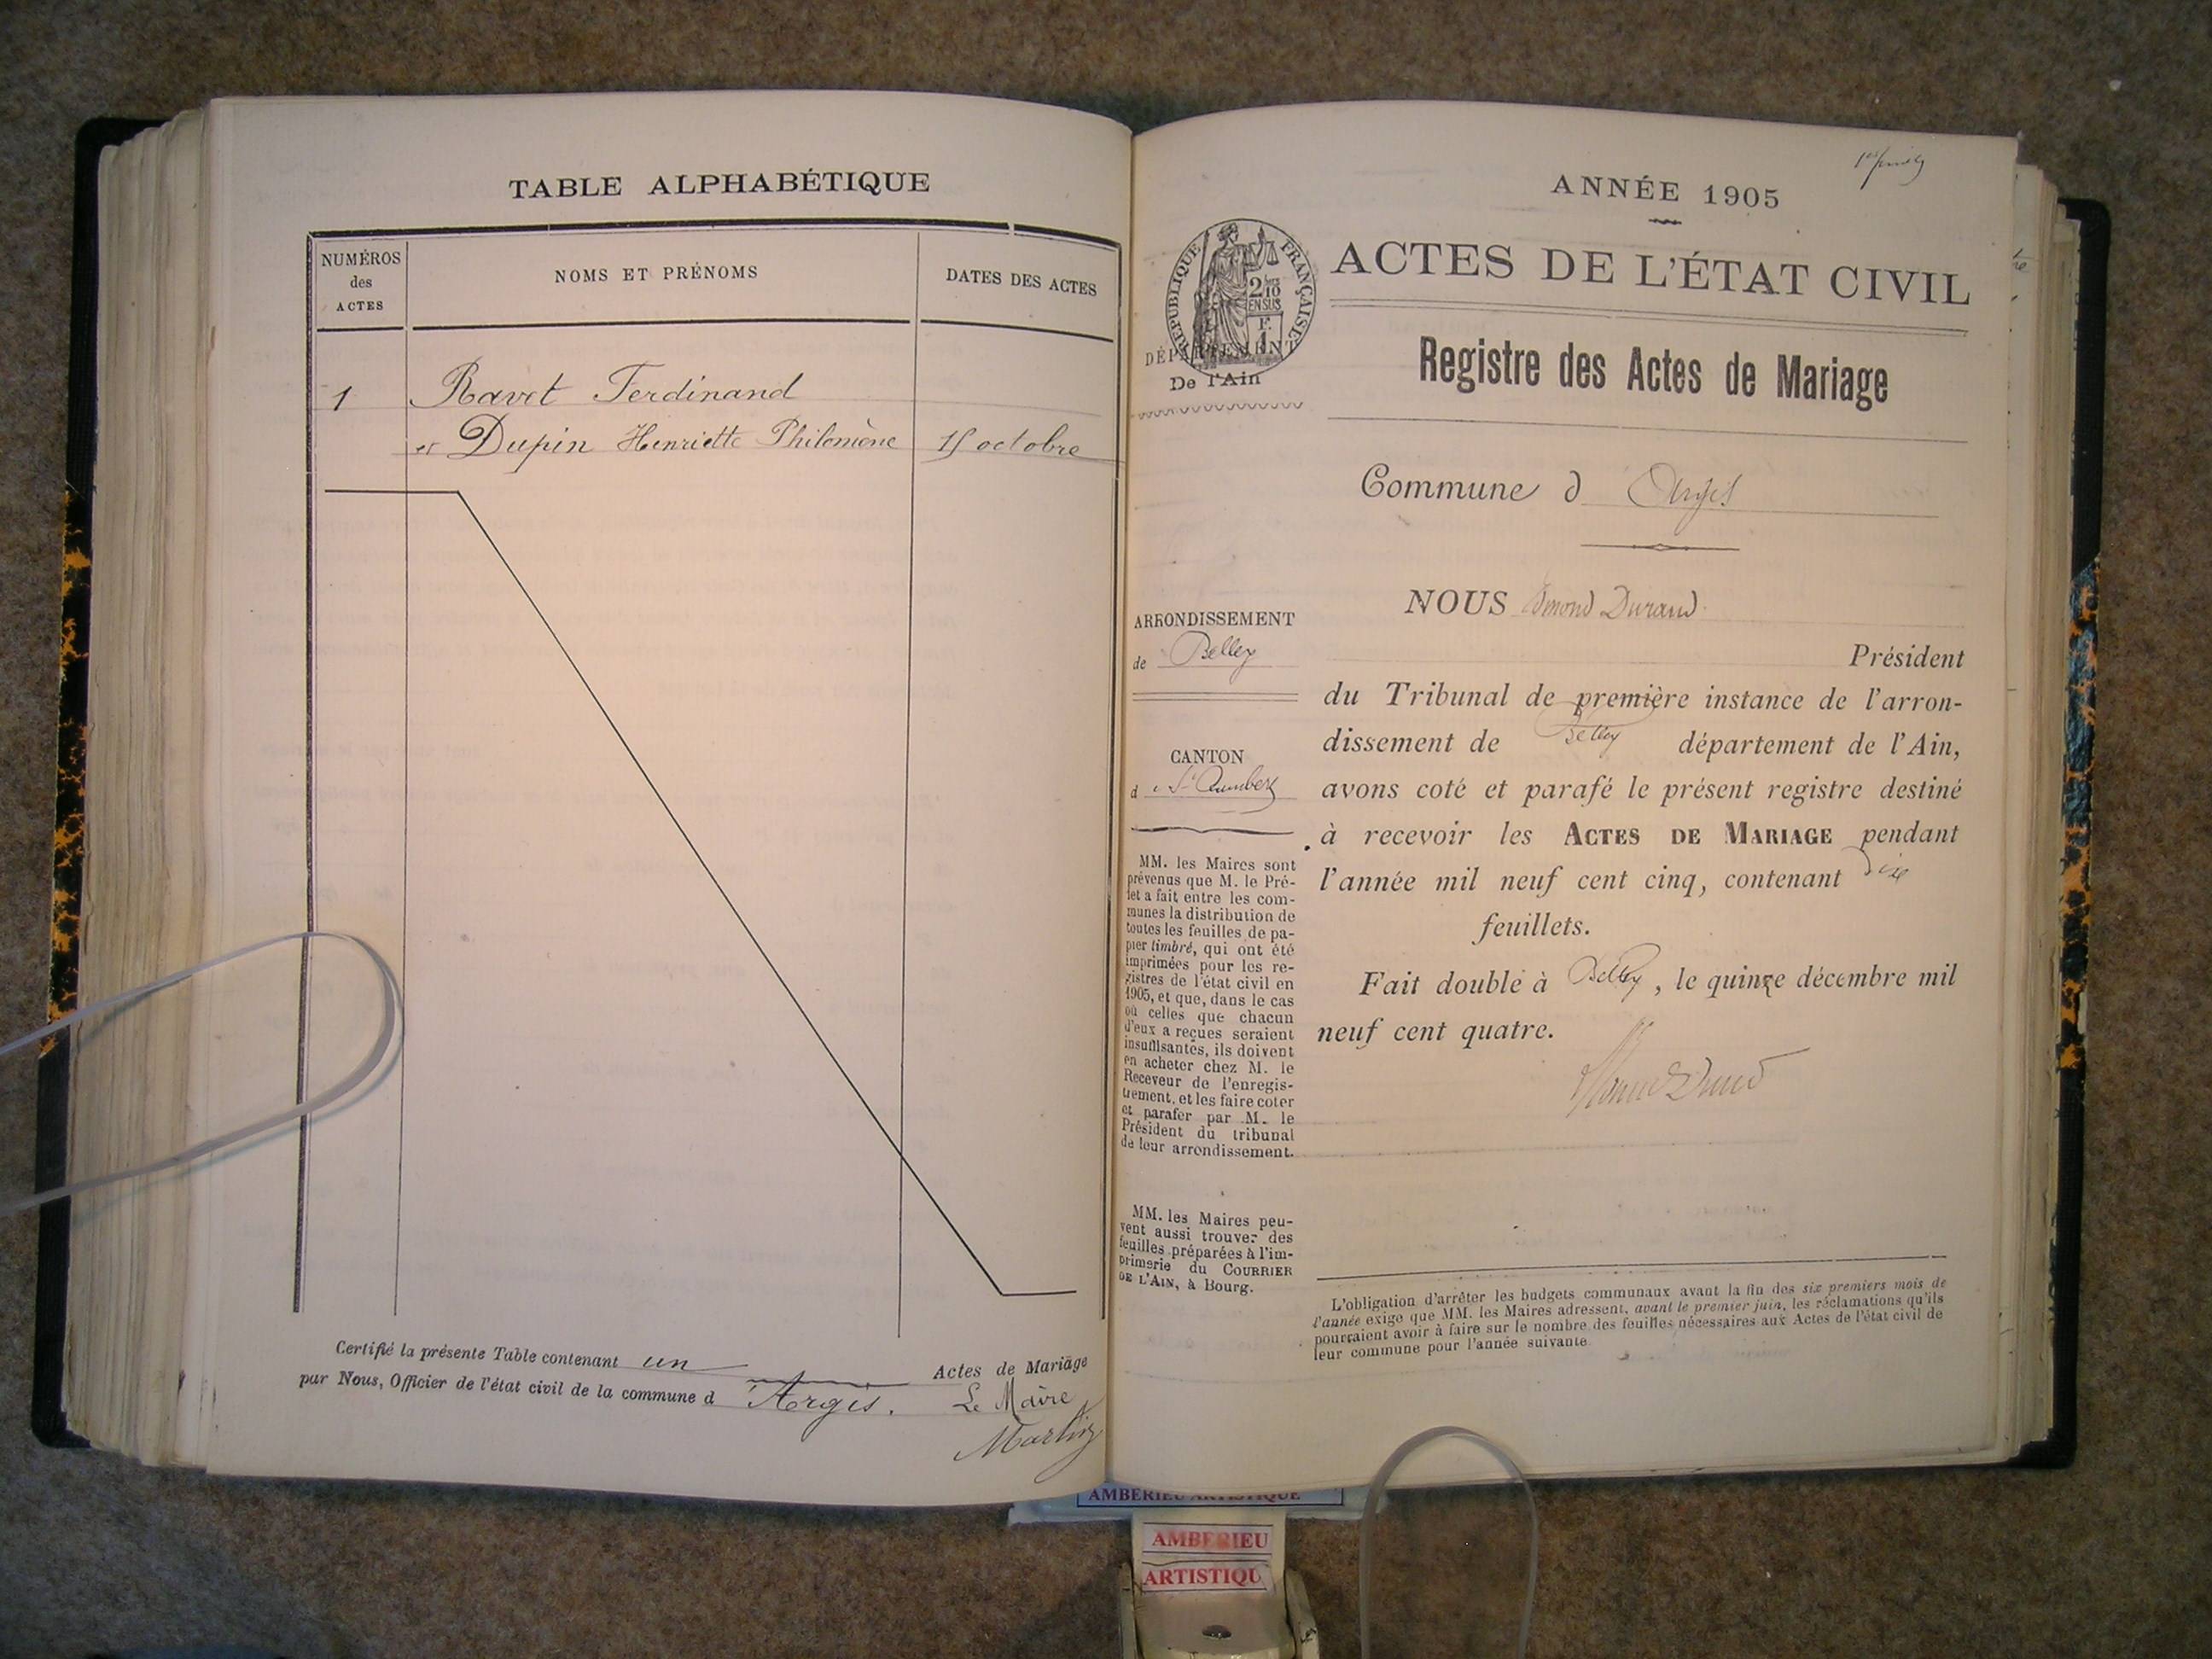 TABLE ALPHABÉTIQUE
NUMÉROS
des
ACTES
NOMS ET PRÉNOMS
DATES DES ACTES
1
Ravet Ferdinand
et Dupin Henriette Philomène
15 octobre
Certifié la présente Table contenant un Actes de Mariage
par Nous, Officier de l'état civil de la commune d Argis.
Le Maire
Martin
ANNÉE 1905
RÉPUBLIQUE FRANÇAISE
2/10
EN SUS
F.
1
DÉPARTEMENT
De l'Ain
ACTES DE L'ÉTAT CIVIL
Registre des Actes de Mariage
Commune d Argis
ARRONDISSEMENT
de Belley
CANTON
d
MM. les Maires sont
prévenus que M. le Pré-
fet a fait entre les com-
munes la distribution de
toutes les feuilles de pa-
pier timbré, qui ont été
imprimées pour les re-
gistres de l'état civil en
1905, et que, dans le cas
où celles que chacun
d'eux a reçues seraient
insuffisantes, ils doivent
en acheter chez M. le
Receveur de l'enregis-
trement, et les faire coter
et parafer par M. le
Président du tribunal
de leur arrondissement.
MM. les Maires peu-
vent aussi trouver des
feuilles préparées à l'im-
primerie du COURRIER
DE L'AIN, à Bourg.
NOUS Edmond Durand
Président
du Tribunal de première instance de l'arron-
dissement de Belley département de l'Ain,
avons coté et parafé le présent registre destiné
à recevoir les ACTES DE MARIAGE pendant
l'année mil neuf cent cinq, contenant dix
feuillets.
Fait double à Belley, le quinze décembre mil
neuf cent quatre.
L'obligation d'arrêter les budgets communaux avant la fin des six premiers mois de
l'année exige que MM. les Maires adressent, avant le premier juin, les réclamations qu'ils
pourraient avoir à faire sur le nombre des feuilles nécessaires aux Actes de l'état civil de
leur commune pour l'année suivante.
AMBERIEU ARTISTIQUE
AMBERIEU
ARTISTIQU